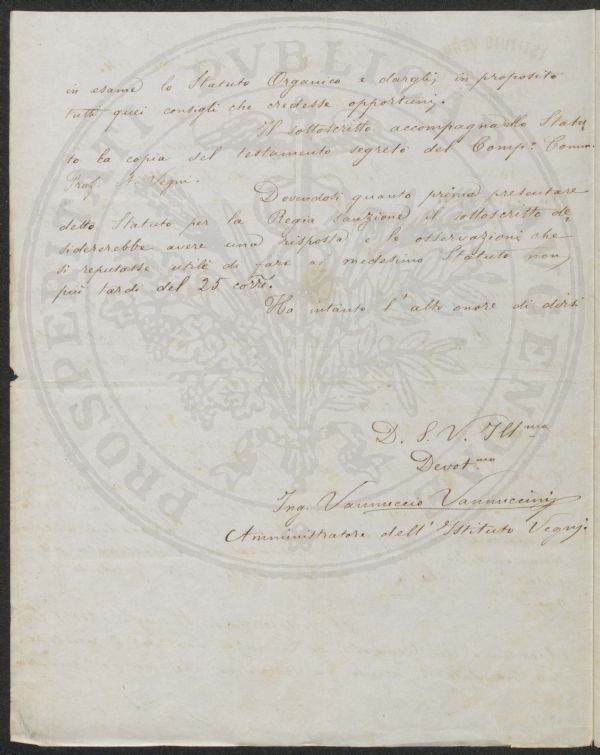 in esame lo Statuto Organico e dargli, in proposito
tutti quei consigli che credesse opportuni.
Il sottoscritto accompagna allo Statu
to la copia del testamento segreto del Comp: Comm.
Prof. A. Vegni.
Dovendosi quanto prima presentare
detto Statuto per la Regia Sanzione il sottoscritto de
sidererebbe avere una risposta e le osservazioni che
si reputasse utile di fare al medesimo Statuto non
più tardi del 25 corrē.
Ha intanto l'alto onore di dirsi
D. S. V. Ill.ma
Devot.mo
Ing. Vannuccio Vannuccini
Amministratore dell'Istituto Vegni.
PROSPERITATI PVBLICAE